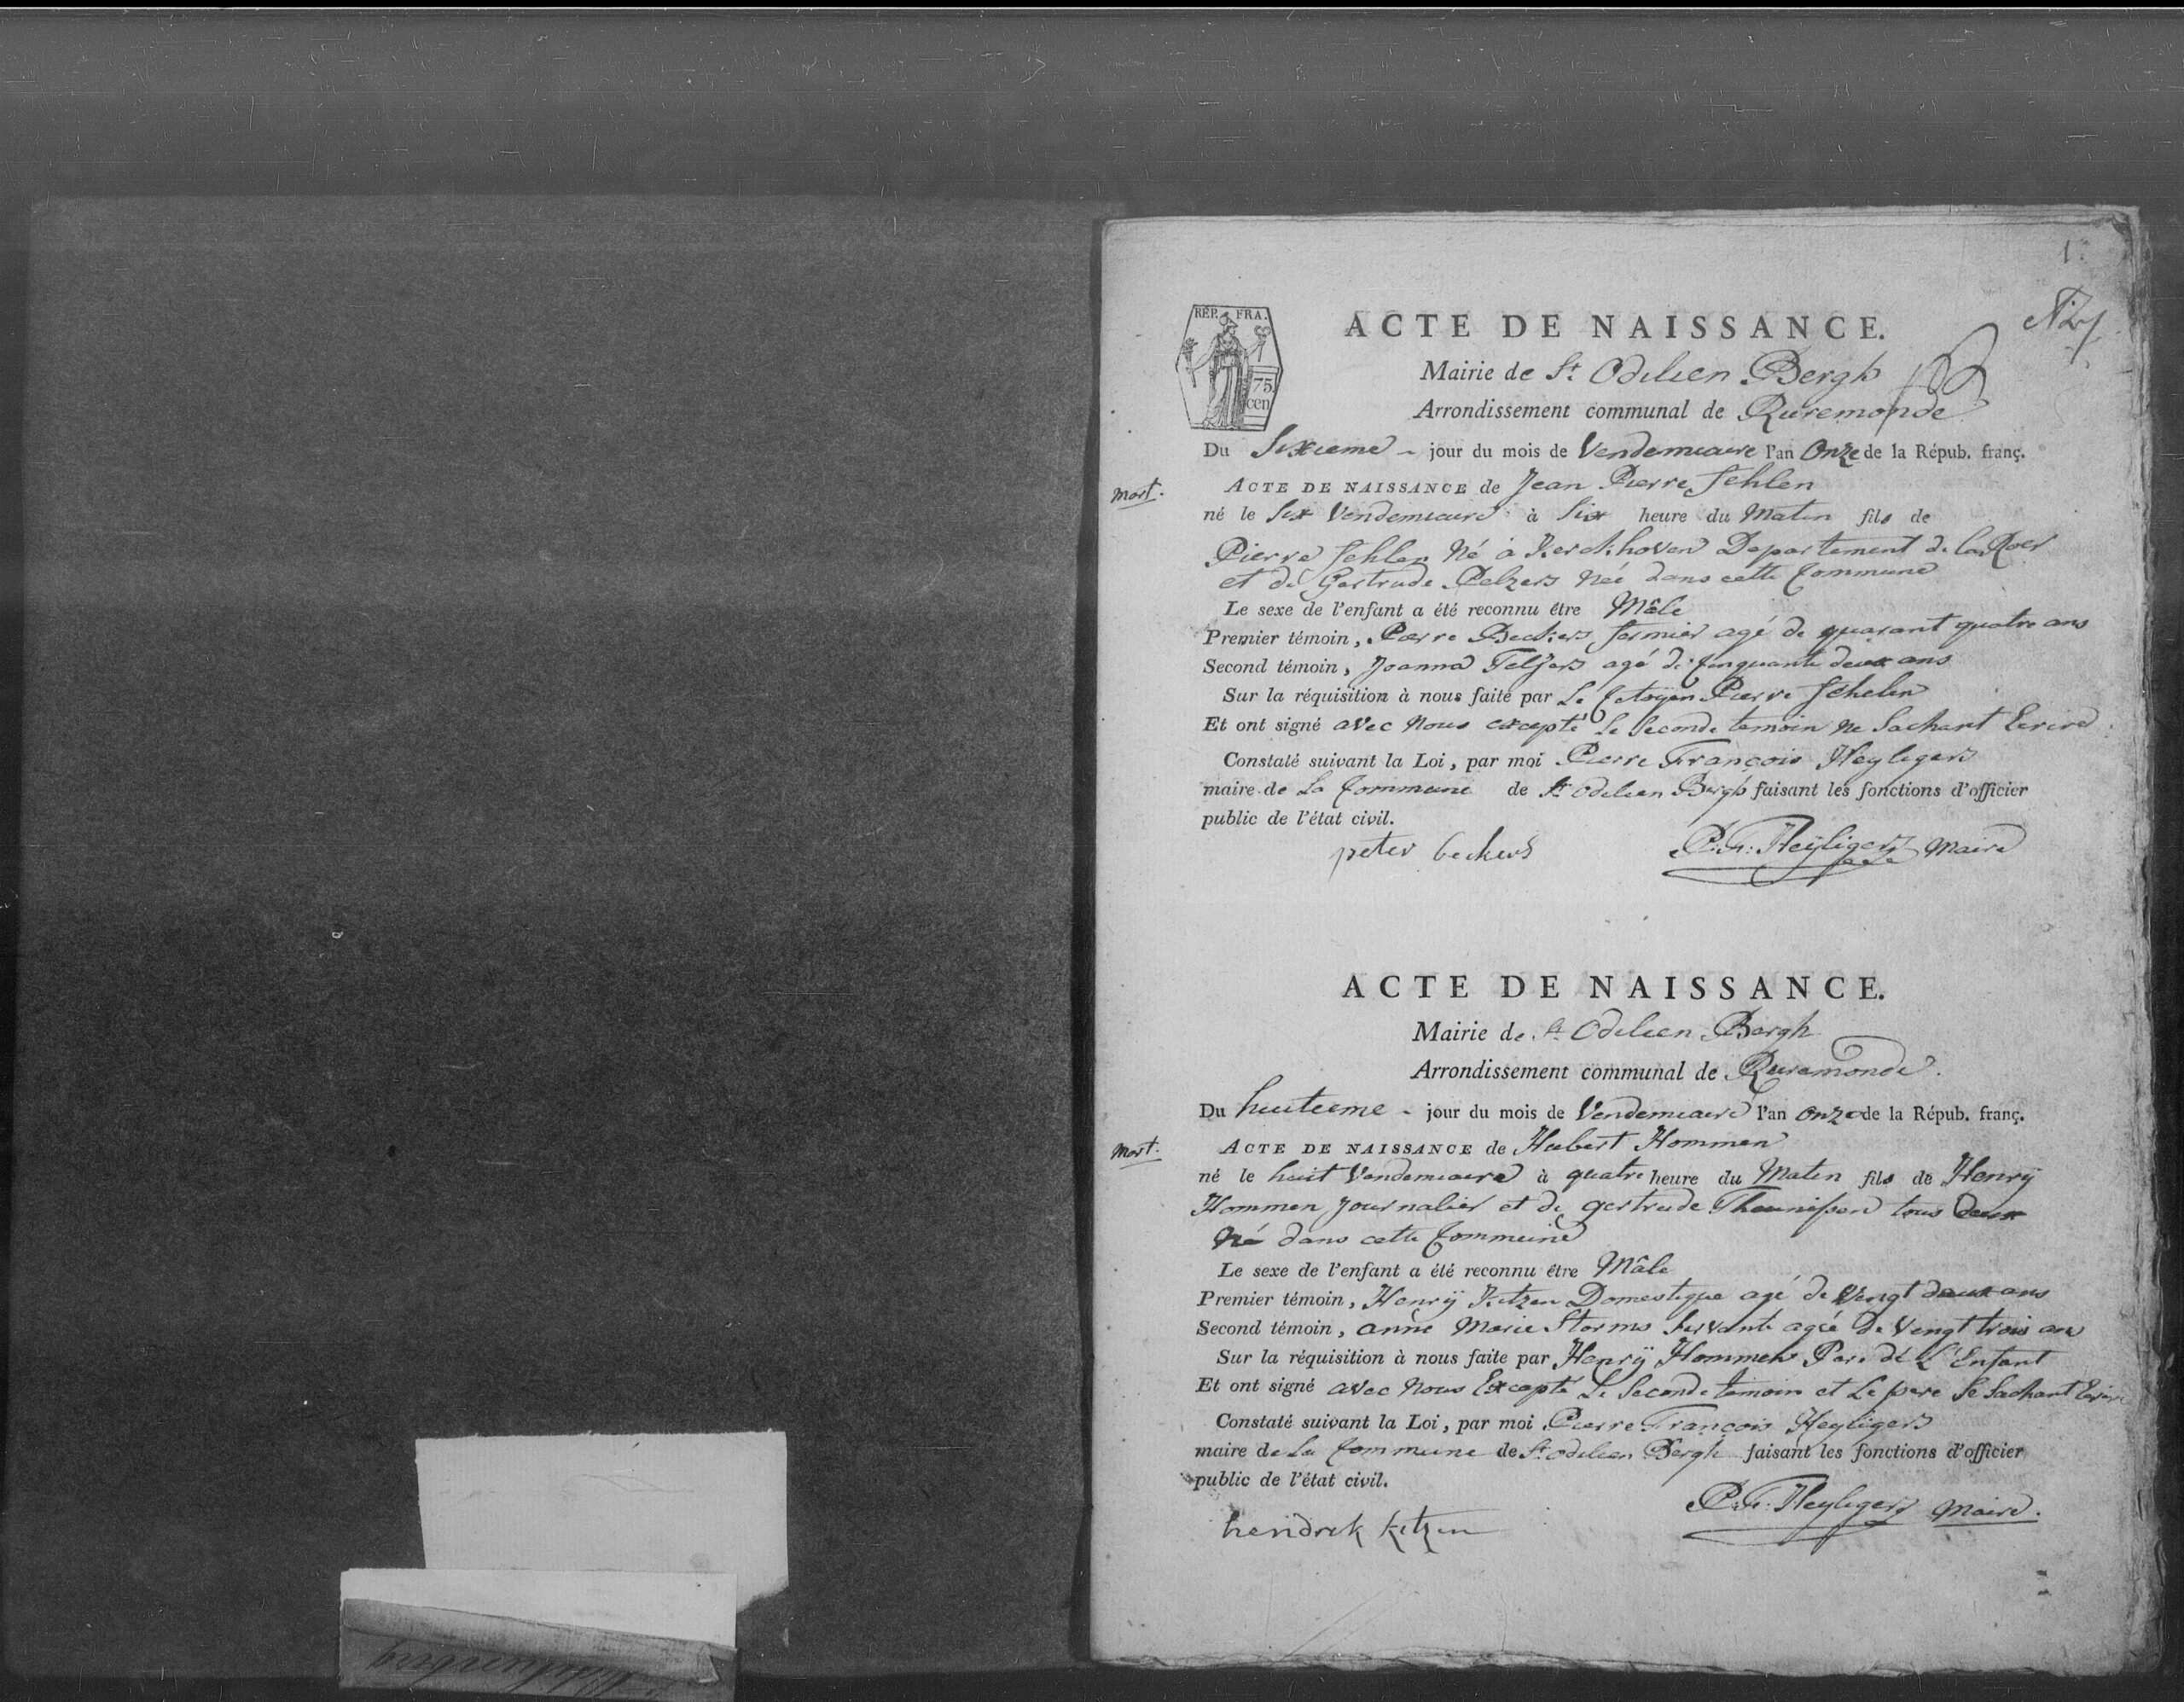 1.
RÉP. FRA.
75.
cen
ACTE DE NAISSANCE.
Mairie de St. Odilien Bergh
Arrondissement communal de Ruremonde
Du Sixieme - jour du mois de Vendemiaire l'an Onze de la Répub. franç.
mort.
ACTE DE NAISSANCE de Jean Pierre Sehlen
né le Six Vendemiaire à Six heure du Matin fils de
Pierre Sehlen Né à Kerckhoven Departement de la Roer
et de Gertrude Pelzers Née dans cette Commune
Le sexe de l'enfant a été reconnu être Mâle
Premier témoin, Pierre Beckers fermier agé de quarant quatre ans
Second témoin, Joanna agé de Cinquante deux ans
Sur la réquisition à nous faite par Le Citoÿen Pierre Sehelen
Et ont signé avec Nous excepté Le Seconde temoin ne Sachant Ecrire
Constaté suivant la Loi, par moi Pierre François Heyligers
maire de La Commune de St Odilien Bergh faisant les fonctions d'officier
public de l'état civil.
peter beckers P. F: Heÿligers Maire
ACTE DE NAISSANCE.
Mairie de St. Odilien Bergh
Arrondissement communal de Ruremonde.
Du huitieme - jour du mois de Vendemiaire l'an onze de la Répub. franç.
Mort.
ACTE DE NAISSANCE de Hubert Hommen
né le huit Vendemiaire à quatre heure du Matin fils de Henrÿ
Hommen Journalier et de gertrude Theunissen tous deux
Né dans cette Commune
Le sexe de l'enfant a été reconnu être Mâle
Premier témoin, Henrÿ Kitzen Domestique agé de Vingt deux ans
Second témoin, anne Marie Storms Servante agée de Vingt trois ans
Sur la réquisition à nous faite par Henrÿ Hommen Pere de L'Enfant
Et ont signé avec Nous Excepté Le Seconde temoin et Le pere Sachant Ecrire
Constaté suivant la Loi, par moi Pierre François Heyligers
maire de La Commune de St. odilien Bergh faisant les fonctions d'officier
public de l'état civil.
hendrek kitzen P. F: Heyligers Maire.